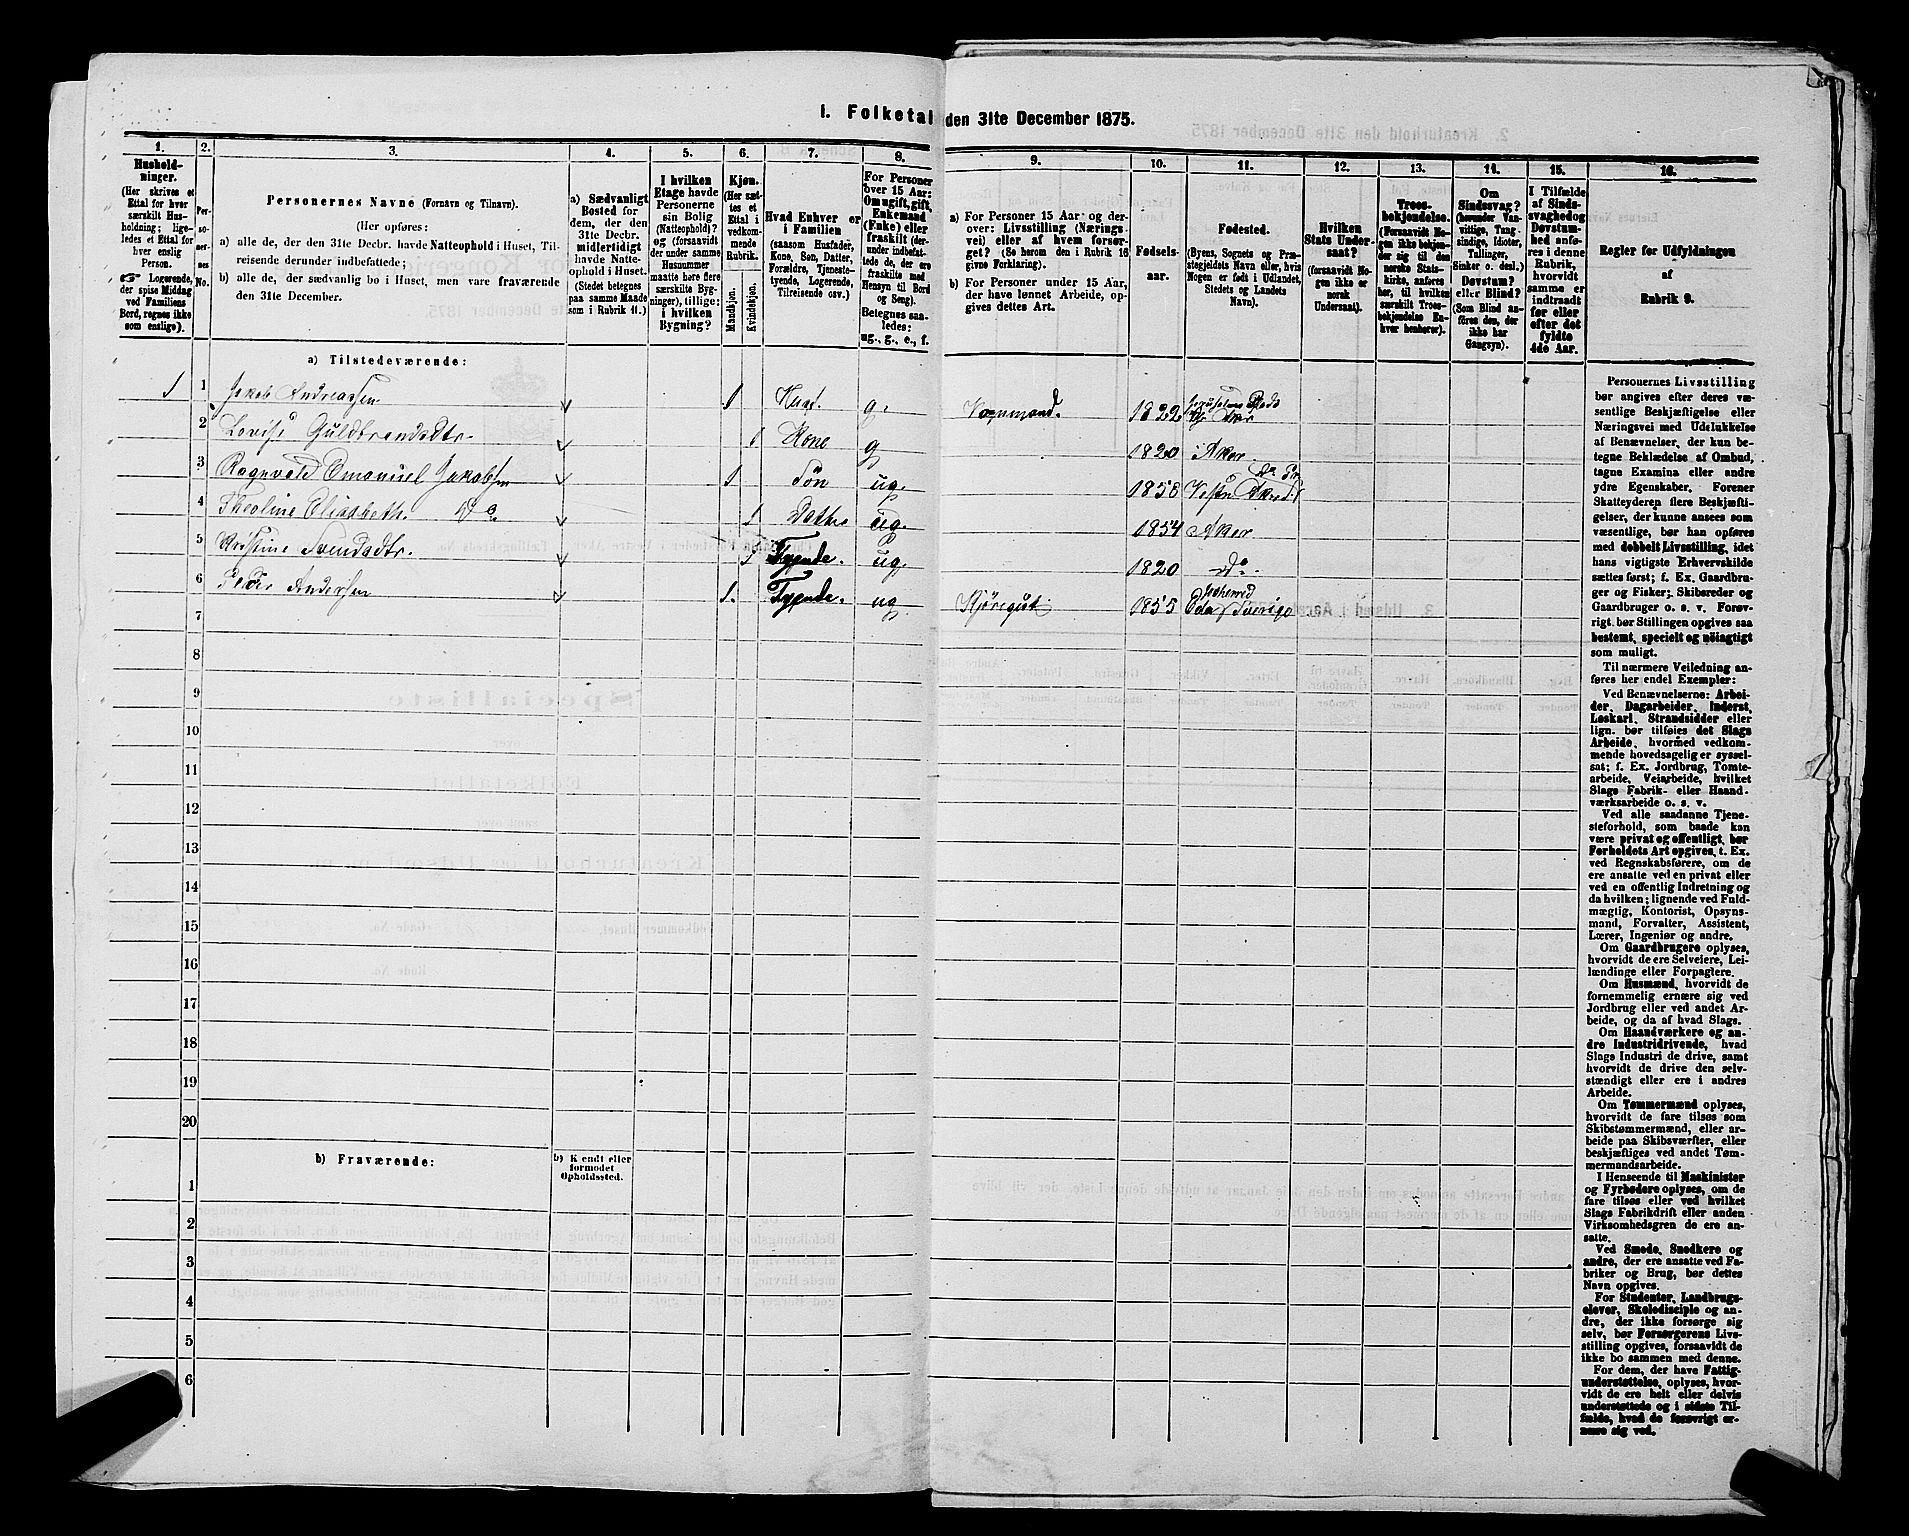 1. Folketal den 31te December 1875.
1.
2.
3.
4.
5.
6.
7.
8.
9.
10.
11.
12.
13.
14.
15.
16.
Hushold-
ninger.
(Her skrives et
Ettal for hver
særskilt Hus-
holdning; lige-
ledes et Ettal for
hver enslig
Person.
☞ Logerende,
der spise Middag
ved Familiens
Bord, regnes ikke
som enslige).
Per-
so-
ner-
nes
No.
Personernes Navne (Fornavn og Tilnavn).
(Her opføres:
a) alle de, der den 31te Decbr. havde Natteophold i Huset, Til-
reisende derunder indbefattede;
b) alle de, der sædvanlig bo i Huset, men vare fraværende
den 31te December.
a) Sædvanligt
Bosted for
dem, der den
31te Decbr.
midlertidigt
havde Natte-
ophold i Huset.
(Stedet betegnes
paa samme Maade
som i Rubrik 11.)
I hvilken
Etage havde
Personerne
sin Bolig
(Natteophold)?
og (forsaavidt
der under samme
Husnummer
maatte høre flere
særskilte Byg-
ninger), tillige:
i hvilken
Bygning?
Kjøn.
(Her sæt-
tes et
Ettal i
vedkom-
mende
Rubrik.
Mandkjøn.
Kvindekjøn.
Hvad Enhver er
i Familien
(saasom Husfader,
Kone, Søn, Datter,
Forældre, Tjeneste-
tyende, Logerende,
Tilreisende osv.)
For Personer
over 15 Aar:
Om ugift, gift,
Enkemand
(Enke) eller
fraskilt (der-
under indbefat-
tede de, der ere
fraskilte med
Hensyn til Bord
og Seng).
Betegnes saa-
ledes:
ug., g., e., f.
a) For Personer 15 Aar og der-
over: Livsstilling (Nærings-
vei) eller af hvem forsør-
get? (Se herom den i Rubrik 16
givne Forklaring).
b) For Personer under 15 Aar,
der have lønnet Arbeide, op-
gives dettes Art.
Fødsels-
aar.
Fødested.
(Byens, Sognets og Præ-
stegjeldets Navn eller, hvis
Nogen er født i Udlandet,
Stedets og Landets
Navn).
Hvilken
Stats Under-
saat?
(forsaavidt No-
gen ikke er
norsk
Undersaat).
Troes-
bekjendelse.
(Forsaavidt No-
gen ikke bekjen-
der sig til den
norske Stats-
kirke, anføres
her, til hvilken
særskilt Troes-
bekjendelse En-
hver henhører).
Om
Sindssvag?
(herunder Van-
vittige, Tung-
sindige, Idioter,
Tullinger,
Sinker o. desl.)
Døvstum?
eller Blind?
(Som Blind an-
føres den, der
ikke har
Gangsyn).
I Tilfælde
af Sinds-
svaghed og
Døvstum-
hed anfø-
res i denne
Rubrik,
hvorvidt
samme er
indtraadt
før eller
efter det
fyldte
4de Aar.
Regler for Udfyldningen
af
Rubrik 9.
a) Tilstedeværende:
1 1 Jakob Andreassen 1 Husf. g. 1822
2 Lovise Guldbrandsdtr. 1 Kone g 1820 Aker
3 Ragnvald Emanuel Jakobsen 1 Søn ug. 1850
4 Theoline Elisabeth Do 1 Datter ug. 1854 Aker
5 Kristine Svendsdtr. 1 Tyende. ug. 1820 Do.
6 Peder Andersen 1. Tyende. ug Kjøregut 1855 Sverige
7
8
9
10
11
12
13
14
15
16
17
18
19
20
b) Fraværende:
b) Kendt eller
formodet
Opholdssted.
1
2
3
4
5
6
Personernes Livsstilling
bør angives efter deres væ-
sentlige Beskjæftigelse eller
Næringsvei med Udelukkelse
af Benævnelser, der kun be-
tegne Beklædelse af Ombud,
tagne Examina eller andre
ydre Egenskaber. Forener
Skatteyderen flere Beskjæfti-
gelser, der kunne ansees som
væsentlige, bør han opføres
med dobbelt Livsstilling, idet
hans vigtigste Erhvervskilde
sættes først; f. Ex. Gaardbru-
ger og Fisker; Skibsreder og
Gaardbruger o. s. v. Forøv-
rigt bør Stillingen opgives saa
bestemt, specielt og nøiagtigt
som muligt.
Til nærmere Veiledning an-
føres her endel Exempler:
Ved Benævnelserne: Arbei-
der, Dagarbeider, Inderst,
Løskarl, Strandsidder eller
lign. bør tilføies det Slags
Arbeide, hvormed vedkom-
mende hovedsagelig er syssel-
sat; f. Ex. Jordbrug, Tomte-
arbeide, Veiarbeide, hvilket
Slags Fabrik- eller Haand-
værksarbeide o. s. v.
Ved alle saadanne Tjene-
steforhold, som baade kan
være privat og offentligt, bør
Forholdets Art opgives, t. Ex.
ved Regnskabsførere, om de
ere ansatte ved en privat eller
ved en offentlig Indretning og
da hvilken; lignende ved Fuld-
mægtig, Kontorist, Opsyns-
mand, Forvalter, Assistent,
Lærer, Ingeniør og andre.
Om Gaardbrugere oplyses,
hvorvidt de ere Selveiere, Lei-
lændinge eller Forpagtere.
Om Husmænd, hvorvidt de
fornemmelig ernære sig ved
Jordbrug eller ved andet Ar-
beide, og da af hvad Slags.
Om Haandværkere og an-
dre Industridrivende, hvad
Slags Industri de drive, samt
hvorvidt de drive den selv-
stændigt eller ere i andres
Arbeide.
Om Tømmermænd oplyses,
hvorvidt de fare tilsøs som
Skibstømmermænd, eller ar-
beide paa Skibsværfter, eller
beskjæftiges ved andet Tøm-
mermandsarbeide.
I Henseende til Maskinister
og Fyrbødere oplyses, om de
fare tilsøs eller ved hvilket
Slags Fabrikdrift eller anden
Virksomhedsgren de ere an-
satte.
Ved Smede, Snedkere og
andre, der ere ansatte ved Fa-
briker og Brug, bør dettes
Navn opgives.
For Studenter, Landbrugs-
elever, Skoledisciple og an-
dre, der ikke forsørge sig
selv, bør Forsørgerens Livs-
stilling opgives, forsaavidt de
ikke bo sammen med denne.
For dem, der have Fattig-
understøttelse, oplyses, hvor-
vidt de ere helt eller delvis
understøttede og i sidste Til-
fælde, hvad de forøvrigt er-
nære sig ved.